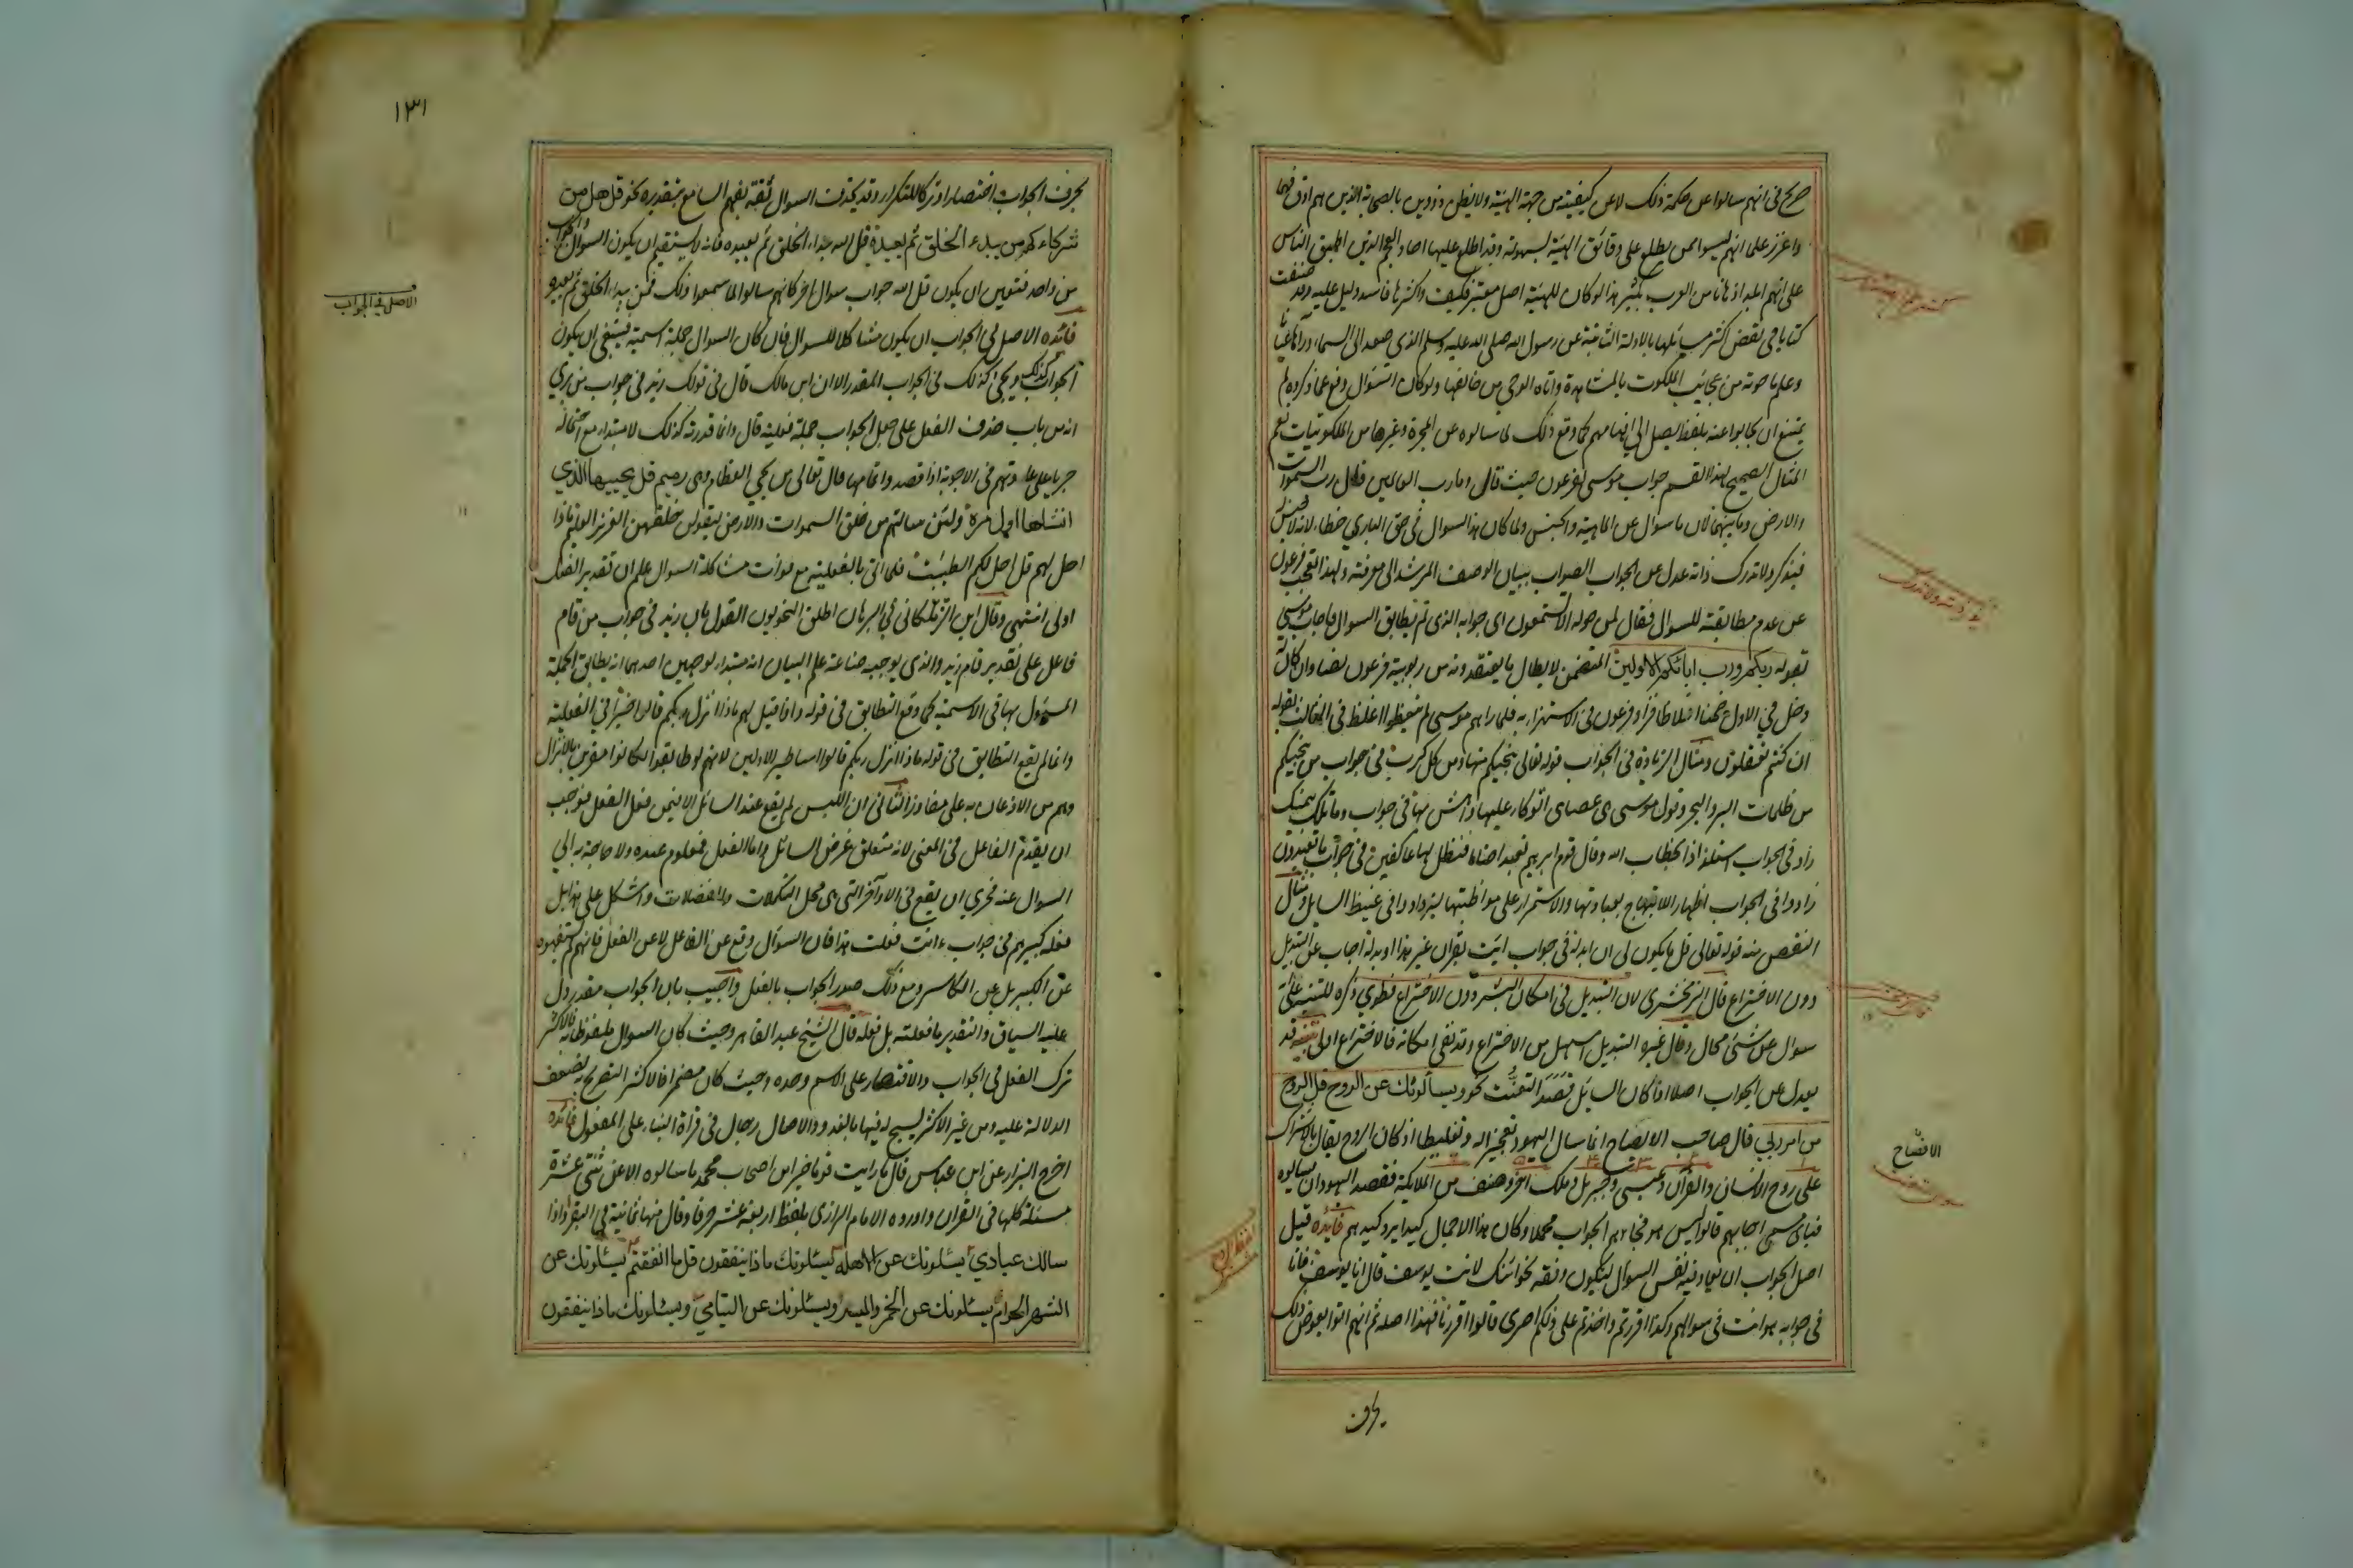 صريح في انهم سالوا عن حكمة ذلك لا عن كيفيته من جهة الهيئة ولا يظن ذو دين بالصحابة الذين هم ادق فهما
واغزر علما انهم ليسوا ممن يطلع على دقائق الهيئة بسهولة وقد اطلع عليها احاد العجم الذين اطبق الناس
على انهم ابلد اذهانا من العرب بكثير هذا لو كان للهيئة اصل معتبر فكيف واكثرها فاسد لا دليل عليه وقد صنفت
كتابا في نقض اكثر مسائلها بالادلة الثابتة عن رسول الله صلى الله عليه وسلم الذي صعد الى السماء ورآها عيانا
وعلم ما حوته من عجايب الملكوت بالمشاهدة واتاه الوحي من خالقها ولو كان السؤال وقع عما ذكروه لم
يمتنع ان يجابوا عنه بلفظ يصل الى افهامهم كما وقع ذلك لما سالوه عن المجرة وغيرها من الملكوتيات نعم
المثال الصحيح لهذا القسم جواب موسى لفرعون حيث قال وما رب العالمين قال رب السموات
والارض وما بينهما لان ما سوال عن الماهية والجنس ولما كان هذا السوال في حق الباري خطا لانه لا جنس له
فيذكر ولا تدرك ذاته عدل عن الجواب الصواب ببيان الوصف المرشد الى معرفته ولهذا تعجب فرعون
عن عدم مطابقته للسوال فقال لمن حوله الا تستمعون اي جوابه الذي لم يطابق السوال فاجاب موسى
بقوله ربكم ورب ابائكم الاولين المتضمن لابطال ما يعتقدونه من ربوبية فرعون نصا وان كان
دخل في الاول ضمنا اغلاظا فزاد فرعون في الاستهزاء به فلما رآهم موسى لم يتفطنوا اغلظ في الثالث بقوله
ان كنتم تعقلون ومثال الزيادة في الجواب قوله تعالى ينجيكم منها ومن كل كرب في جواب من ينجيكم
من ظلمات البر والبحر وقول موسى هي عصاي اتوكأ عليها واهش بها في جواب وما تلك بيمينك
زاد في الجواب استلذاذا بخطاب الله وقال قوم ابراهيم نعبد اصناما فنظل لها عاكفين في جواب ما تعبدون
زادوا في الجواب اظهارا للابتهاج بعبادتها والاستمرار على مواظبتها ليزداد في غيظ السايل ومثال
النقص منه قوله تعالى قل ما يكون لي ان ابدله في جواب ايت بقرآن غير هذا او بدله اجاب عن التبديل
دون الاختراع قال الزمخشري لان التبديل في امكان البشر دون الاختراع فطوي ذكره للتنبيه على انه
سوال عن شيء محال وقال غيره التبديل اسهل من الاختراع وقد نفى امكانه فالاختراع اولى تنبيه قد
يعدل عن الجواب اصلا اذا كان السايل قصد التعنت نحو ويسألونك عن الروح قل الروح
من امر ربي قال صاحب الافصاح انما سال اليهود تعجيزا له وتغليظا اذ كان الروح يقال بالاشتراك
على روح الانسان والقرآن وعيسى وجبريل وملك آخر وصنف من الملايكة فقصد اليهود ان يسالوه
فباي مسمى اجابهم قالوا ليس هو فجاءهم الجواب مجملا وكان هذا الاجمال كيدا يرد كيدهم فائدة قيل
اصل الجواب ان يعاد فيه نفس السوال ليكون وفقه نحو ائنك لانت يوسف قال انا يوسف فانا
في جوابه هو انت في سوالهم وكذا أأقررتم واخذتم على ذلكم اصري قالوا اقررنا فهذا اصله ثم انهم اتوا بعوض ذلك
بحرف
الافصاح
١٣١
بحرف الجواب اختصارا وتركا للتكرار وقد يحذف السوال ثقة بفهم السامع بتقديره نحو قل هل من
شركاءكم من يبدء الخلق ثم يعيده قل الله يبدء الخلق ثم يعيده فانه لا يستقيم ان يكون السوال والجواب
من واحد فتعين ان يكون قل الله جواب سوال آخر كانهم سالوا لما سمعوا ذلك فمن يبدء الخلق ثم يعيده
فائدة الاصل في الجواب ان يكون مشاكلا للسوال فان كان السوال جملة اسمية فينبغي ان يكون
الجواب كذلك ويجئ كذلك في الجواب المقدر الا ان ابن مالك قال في قولك زيد في جواب من يرى
انه من باب حذف الفعل على جعل الجواب جملة فعلية قال وانما قدرته كذلك لا مبتداء مع احتماله
جريا على عادتهم في الاجوبة اذا قصدوا تمامها قال تعالى من يحيي العظام وهي رميم قل يحييها الذي
انشاها اول مرة ولئن سالتهم من خلق السموات والارض ليقولن خلقهن العزيز العليم ماذا
احل لهم قل احل لكم الطيبت فلما اتى بالفعلية مع فوات مشاكلة السوال علم ان تقدير الفعل
اولى انتهى وقال ابن الزملكاني في البرهان اطلق النحويون القول بان زيد في جواب من قام
فاعل على تقدير قام زيد والذي يوجبه صناعة علم البيان انه مبتداء لوجهين احدهما انه يطابق الجملة
المسؤول بها في الاسمية كما وقع التطابق في قوله واذا قيل لهم ماذا انزل ربكم قالوا خيرا في الفعلية
وانما لم يقع التطابق في قوله ماذا انزل ربكم قالوا اساطير الاولين لانهم لو طابقوا لكانوا مقرين بالانزال
وهم من الاذعان به على مفاوز الثاني ان اللبس لم يقع عند السائل الا فيمن فعل الفعل فوجب
ان يقدم الفاعل في المعنى لانه متعلق غرض السائل واما الفعل فمعلوم عنده ولا حاجة به الى
السوال عنه فحري ان يقع في الاواخر التي هي محل التكملات والفضلات واشكل على هذا بل
فعله كبيرهم في جواب ءانت فعلت هذا فان السوال وقع عن الفاعل لا عن الفعل فانهم لم يستفهموه
عن الكسر بل عن الكاسر ومع ذلك صدر الجواب بالفعل واجيب بان الجواب مقدر دل
عليه السياق والتقدير ما فعلته بل فعله قال الشيخ عبد القاهر وحيث كان السوال ملفوظا به فالاكثر
ترك الفعل في الجواب والاقتصار على الاسم وحده وحيث كان مضمرا فالاكثر التصريح به لضعف
الدلالة عليه ومن غير الاكثر يسبح له فيها بالغدو والاصال رجال في قرأة البناء على المفعول فائدة
اخرج البزار عن ابن عباس قال ما رايت قوما خيرا من اصحاب محمد ما سالوه الا عن ثنتي عشرة
مسئلة كلها في القرآن واورده الامام الرازي بلفظ اربعة عشر حرفا وقال منها ثمانية في البقرة واذا
سالك عبادي يسئلونك عن الاهلة يسئلونك ماذا ينفقون قل ما انفقتم يسئلونك عن
الشهر الحرام يسئلونك عن الخمر والميسر ويسئلونك عن اليتامى ويسئلونك ماذا ينفقون
الاصل في الجواب